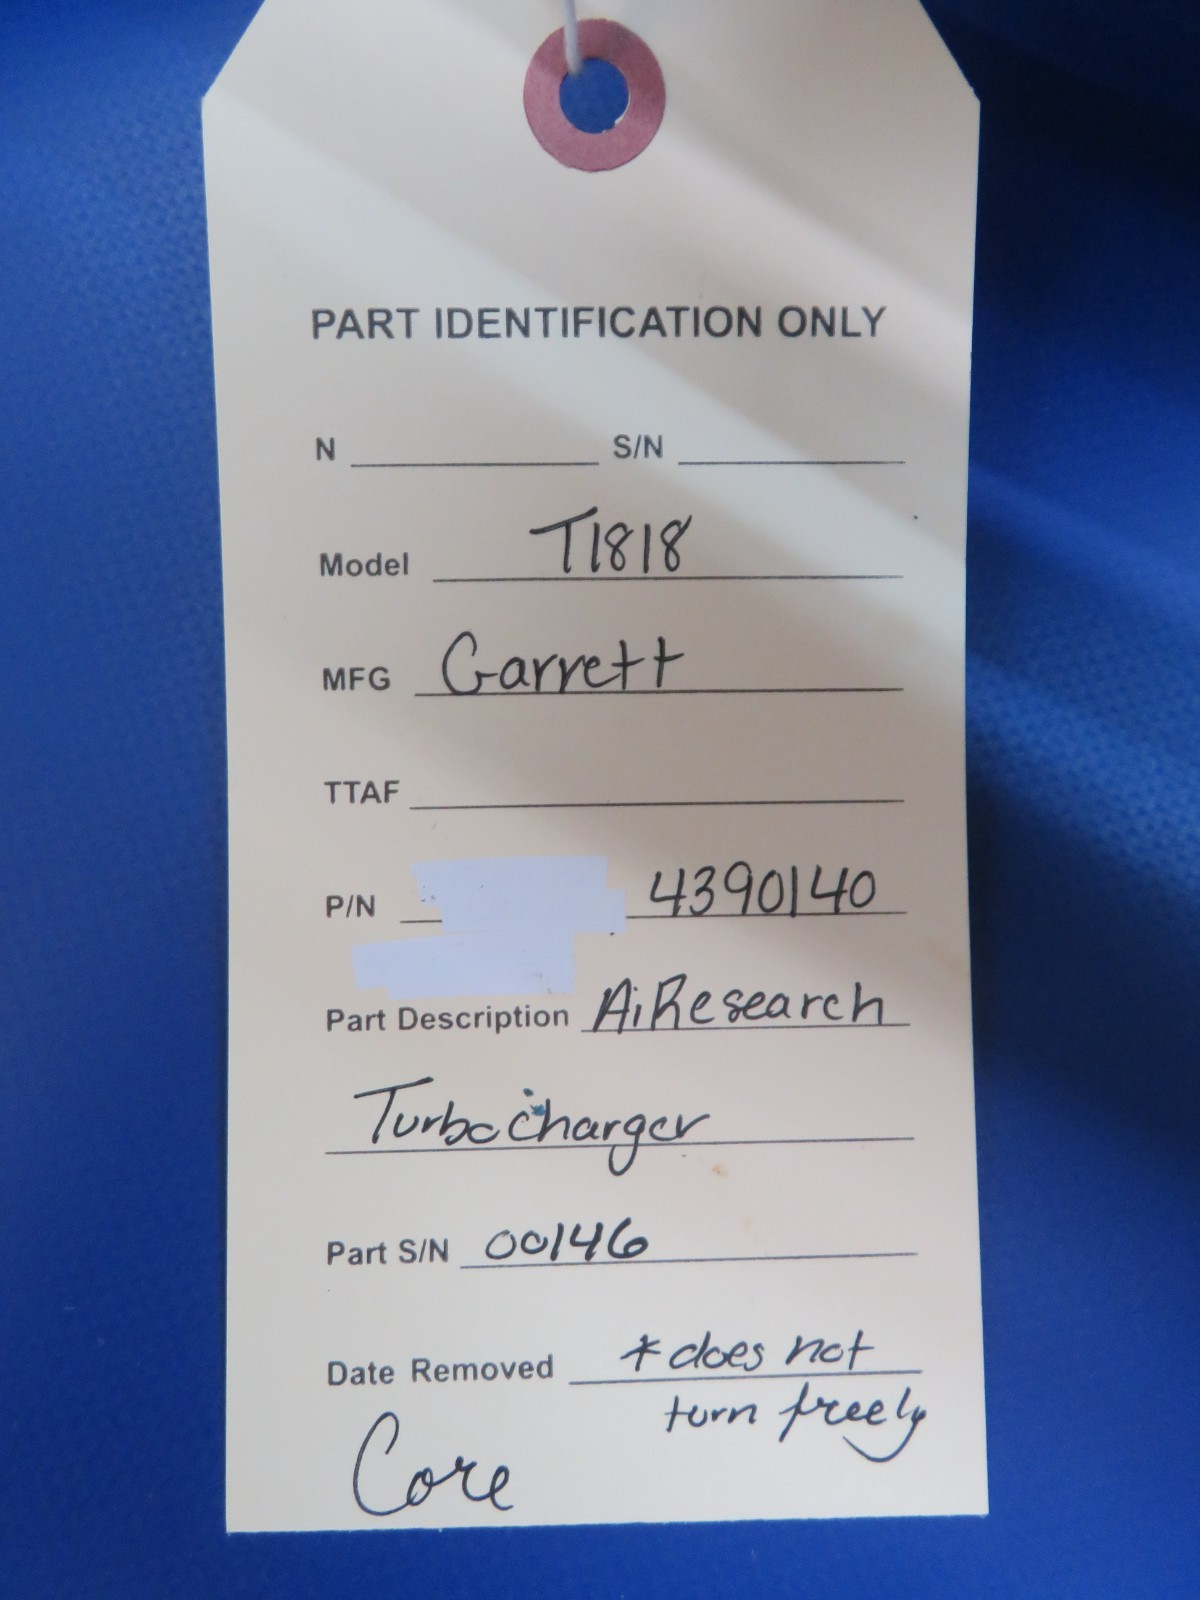 PART IDENTIFICATION ONLY
N S/N
Model T1818
MFG Garrett
TTAF
P/N 4390140
Part Description AiResearch
Turbocharger
Part S/N 00146
Date Removed *does not
turn freely
Core